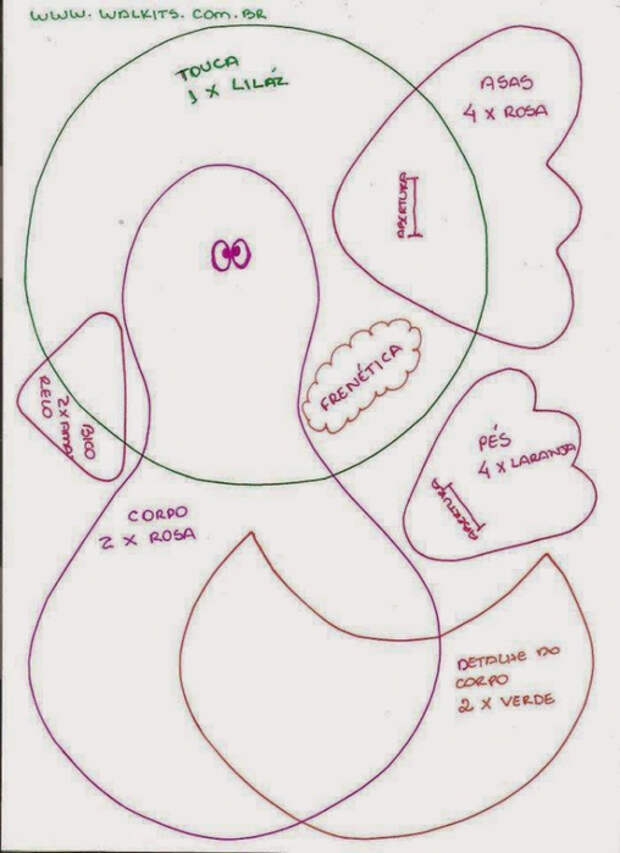 WWW.WALKITS.COM.BR
TOUCA
1 X LILÁZ
ASAS
4 X ROSA
ABERTURA
FRENÉTICA
BICO
2 X AMA
RELO
PÉS
4 X LARANJA
ABERTURA
CORPO
2 X ROSA
DETALHE DO
CORPO
2 X VERDE